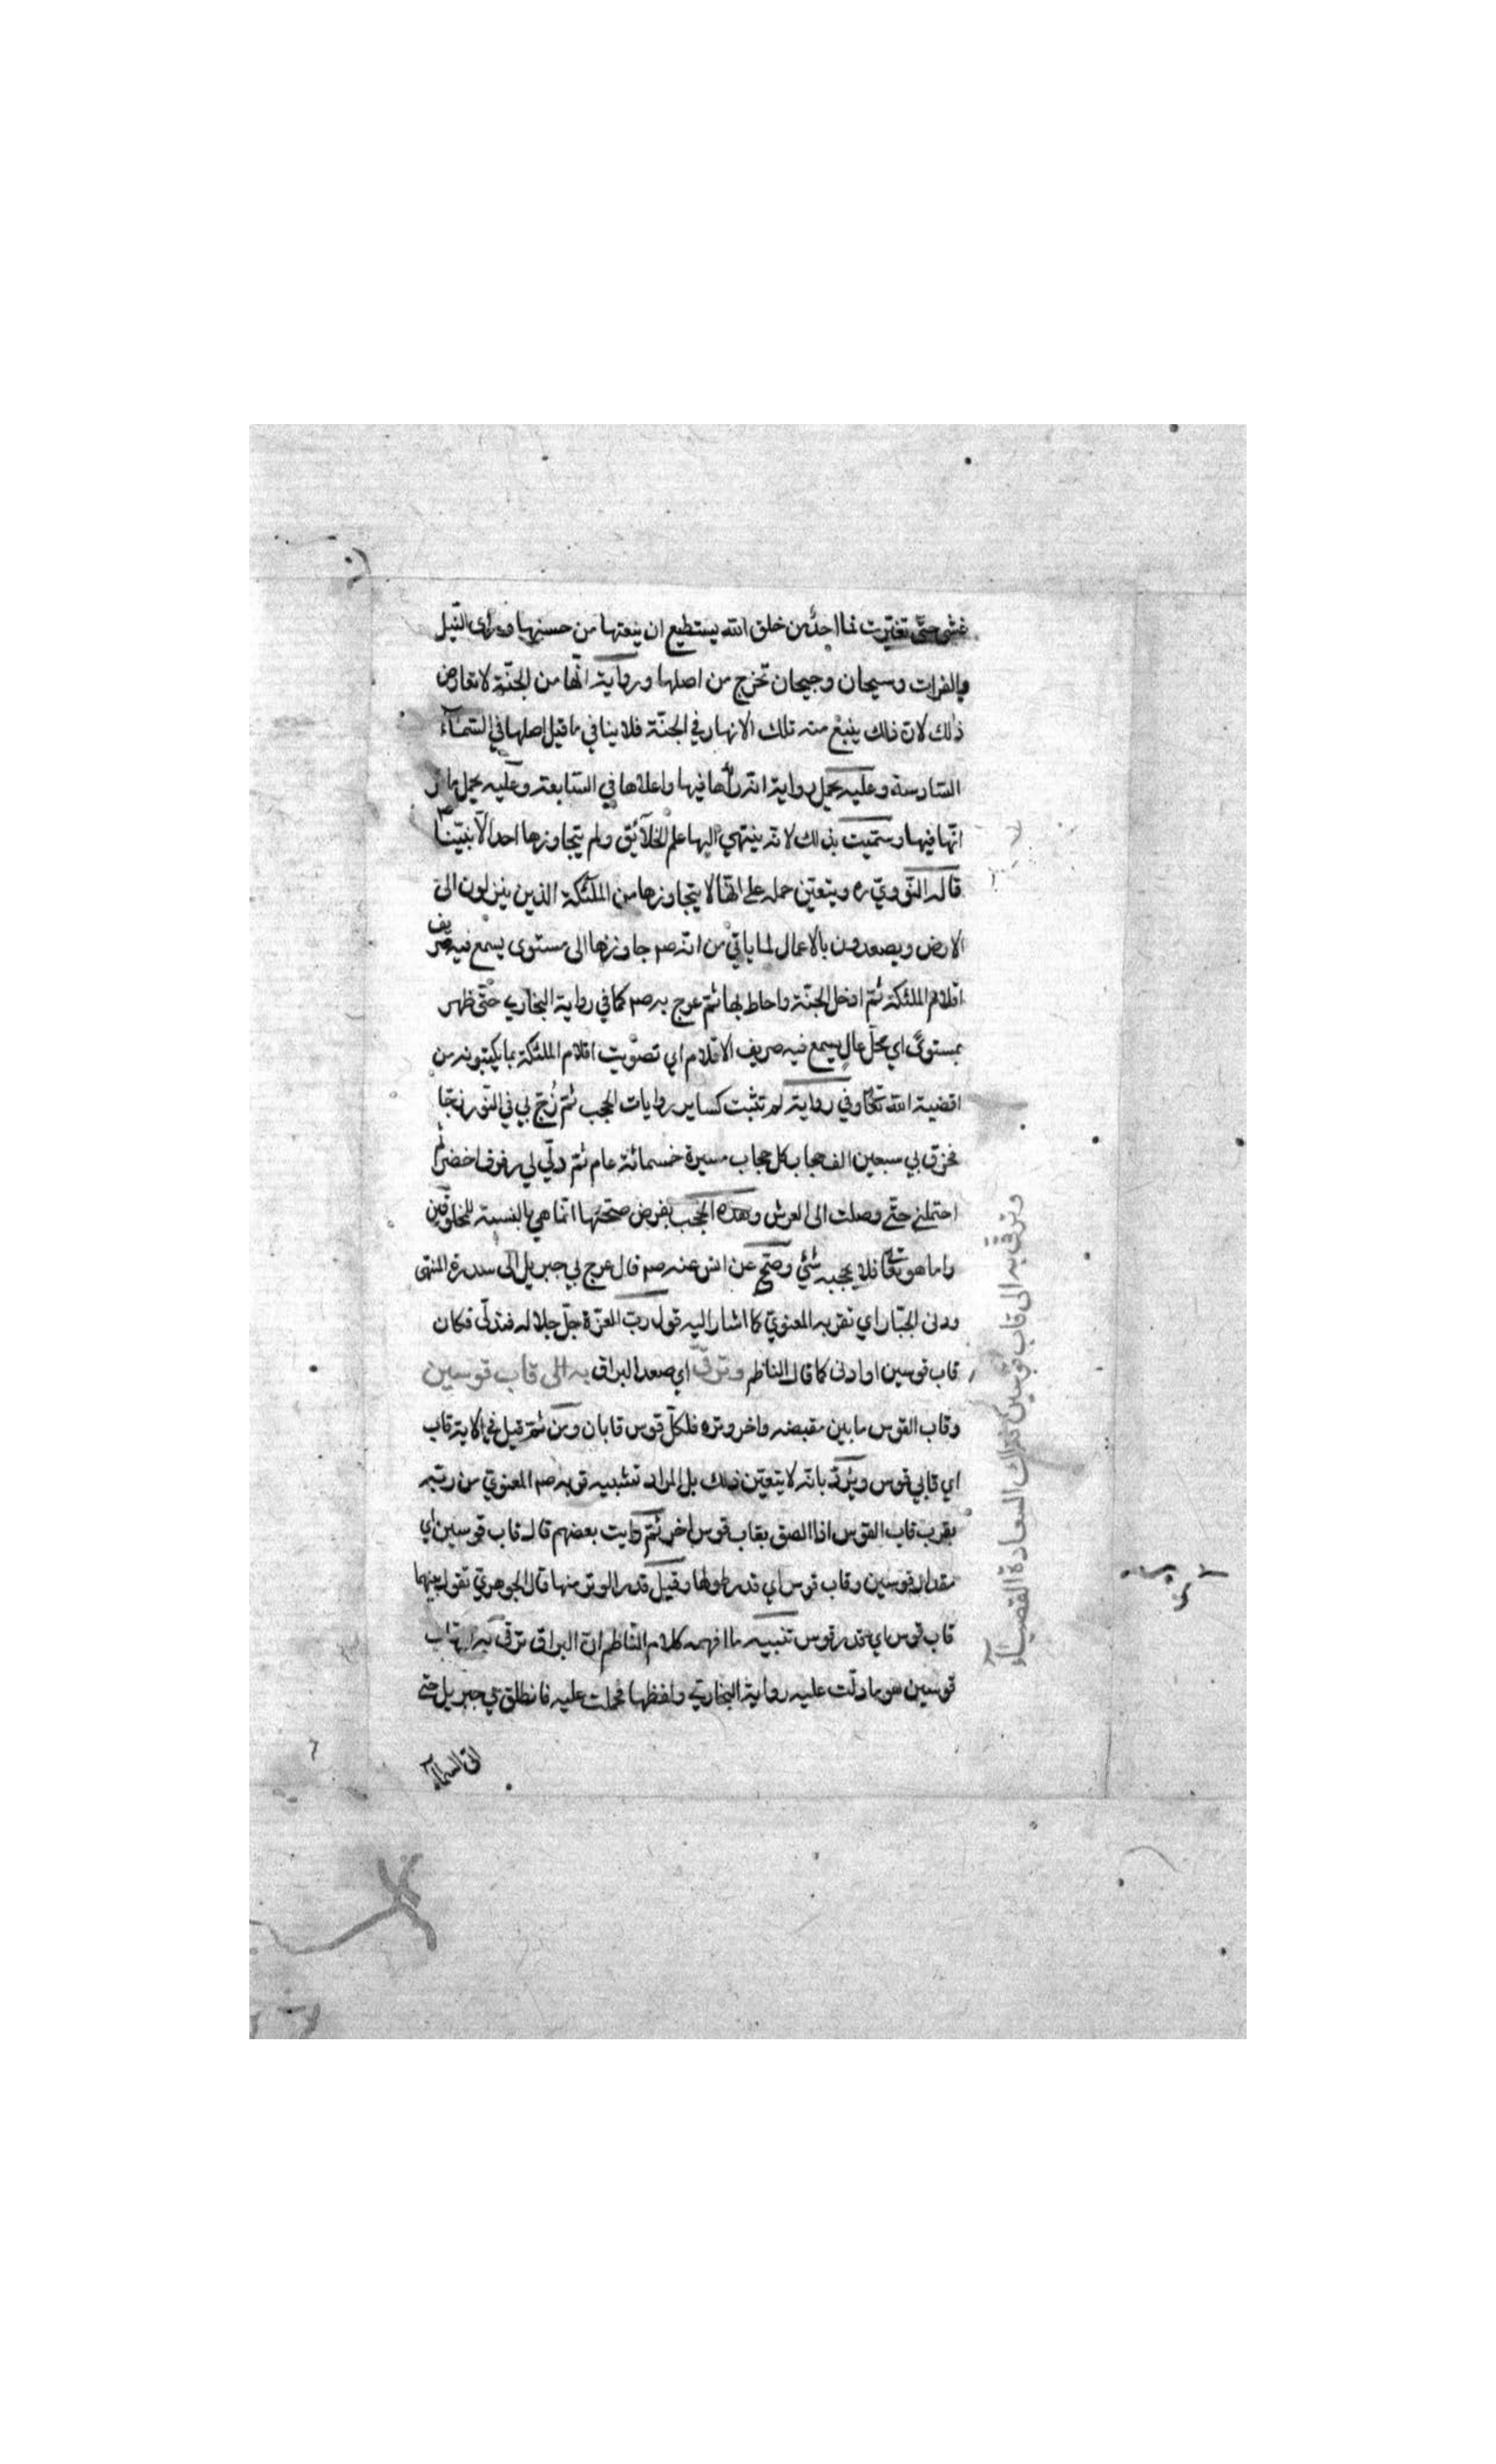 غشى حتّى تغيّرت فما احدٌ من خلق الله يستطيع ان ينعتها من حسنها ورأى النّيل
والفرات وسيحان وجيحان تخرج من اصلها ورواية انّها من الجنّة لا تعارض
ذلك لانّ ذلك ينبع منه تلك الانهار في الجنّة فلا ينافي ما قيل اصلها في السّمآء
السّادسة وعليه يحمل رواية انّه رآها فيها واعلاها في السّابعة وعليه يحمل ما
انّها فيها وسمّيت بذلك لانّه ينتهي اليها علم الخلآئق ولم يتجاوزها احد الّا نبيّنا ص
قاله النّوويّ ره ويتعيّن حمله على انّها لا يتجاوزها من الملٓئكة الذين ينزلون الى
الارض ويصعدون بالاعمال لما ياتي من انّه صم جاوزها الى مستوى يسمع فيه صريف
اقلام الملئكة ثمّ ادخل الجنّة واحاط بها ثمّ عرج به صم كما في رواية البخاري حتّى ظهر
بمستوىً اي محلّ عالٍ يسمع فيه صريف الاقلام اي تصويت اقلام الملئكة بما يكتبونه من
اقضية الله تعا وفي رواية لم تثبت كساير روايات الحجب ثمّ زُجّ بي في النّور زجّا
فخرق بي سبعين الف حجاب كل حجاب مسيرة خمسمائة عام ثمّ دلّي لي رفرف اخضر
احتملني حتّى وصلت الى العرش وهذه الحجب بفرض صحّتها انّما هي بالنسبة للمخلوقين
واما هو تعا فلا يحجبه شئ وصحّ عن انس عنه صم قال عرج بي جبريل الى سدرة المنتهى
ودنى الجبّار اي تقرّبه المعنويّ كما اشار اليه قول ربّ العزّة جلّ جلاله فتدلّى فكان
قاب قوسين او ادنى كما قال الناظم وترقّى اي صعد البراق به الى قاب قوسين
وقاب القوس ما بين مقبضه واخر وتره فلكلّ قوس قابان ومن ثمّ قيل في الاية قاب
اي قابي قوس ويُردّ بانّه لا يتعيّن ذلك بل المراد تشبيه قربه صم المعنويّ من ربّه
بقرب قاب القوس اذا الصق بقاب قوس اخر ثمّ رايت بعضهم قال قاب قوسين اي
مقدار قوسين وقاب قوس اي قدر طولها وقيل قدر الوتر منها قال الجوهريّ تقول بينهما
قاب قوس اي قدر قوس تنبيه ما افهمه كلام النّاظم انّ البراق ترقى به الى قاب
قوسين هو ما دلّت عليه رواية البخاري ولفظها فحملت عليه فانطلق بي جبريل حتى
اتى السمآء
وترقّى به الى قاب قوسين وتلك السعادة القعسآء